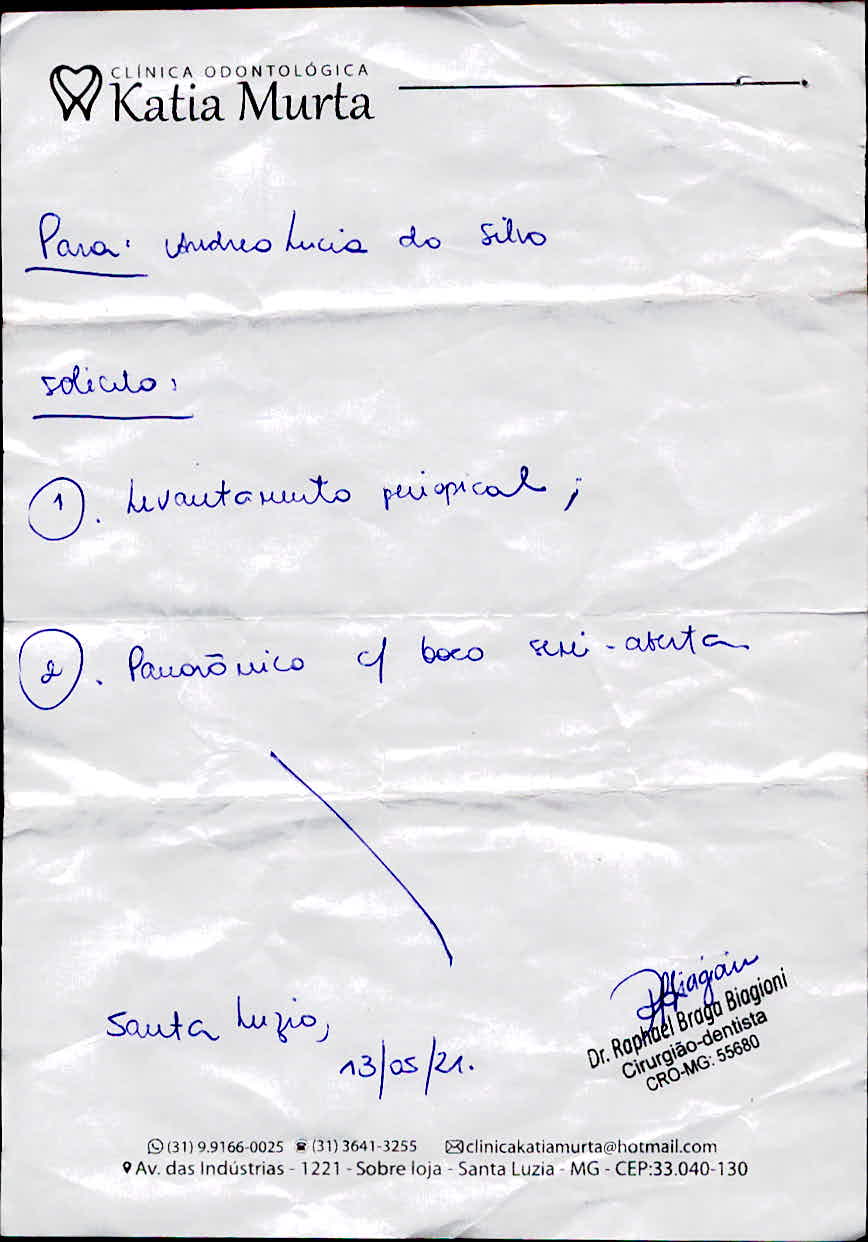 CLÍNICA ODONTOLÓGICA
Katia Murta
Para: Andrea Lucia da Silva
Solicito:
1. Levantamento periapical;
2. Panorâmica c/ boca semi-aberta
Santa Luzia,
13/05/21.
Biagioni
Dr. Raphael Braga Biagioni
Cirurgião-dentista
CRO-MG: 55680
(31) 9.9166-0025 (31) 3641-3255 clinicakatiamurta@hotmail.com
Av. das Indústrias - 1221 - Sobre loja - Santa Luzia - MG - CEP:33.040-130